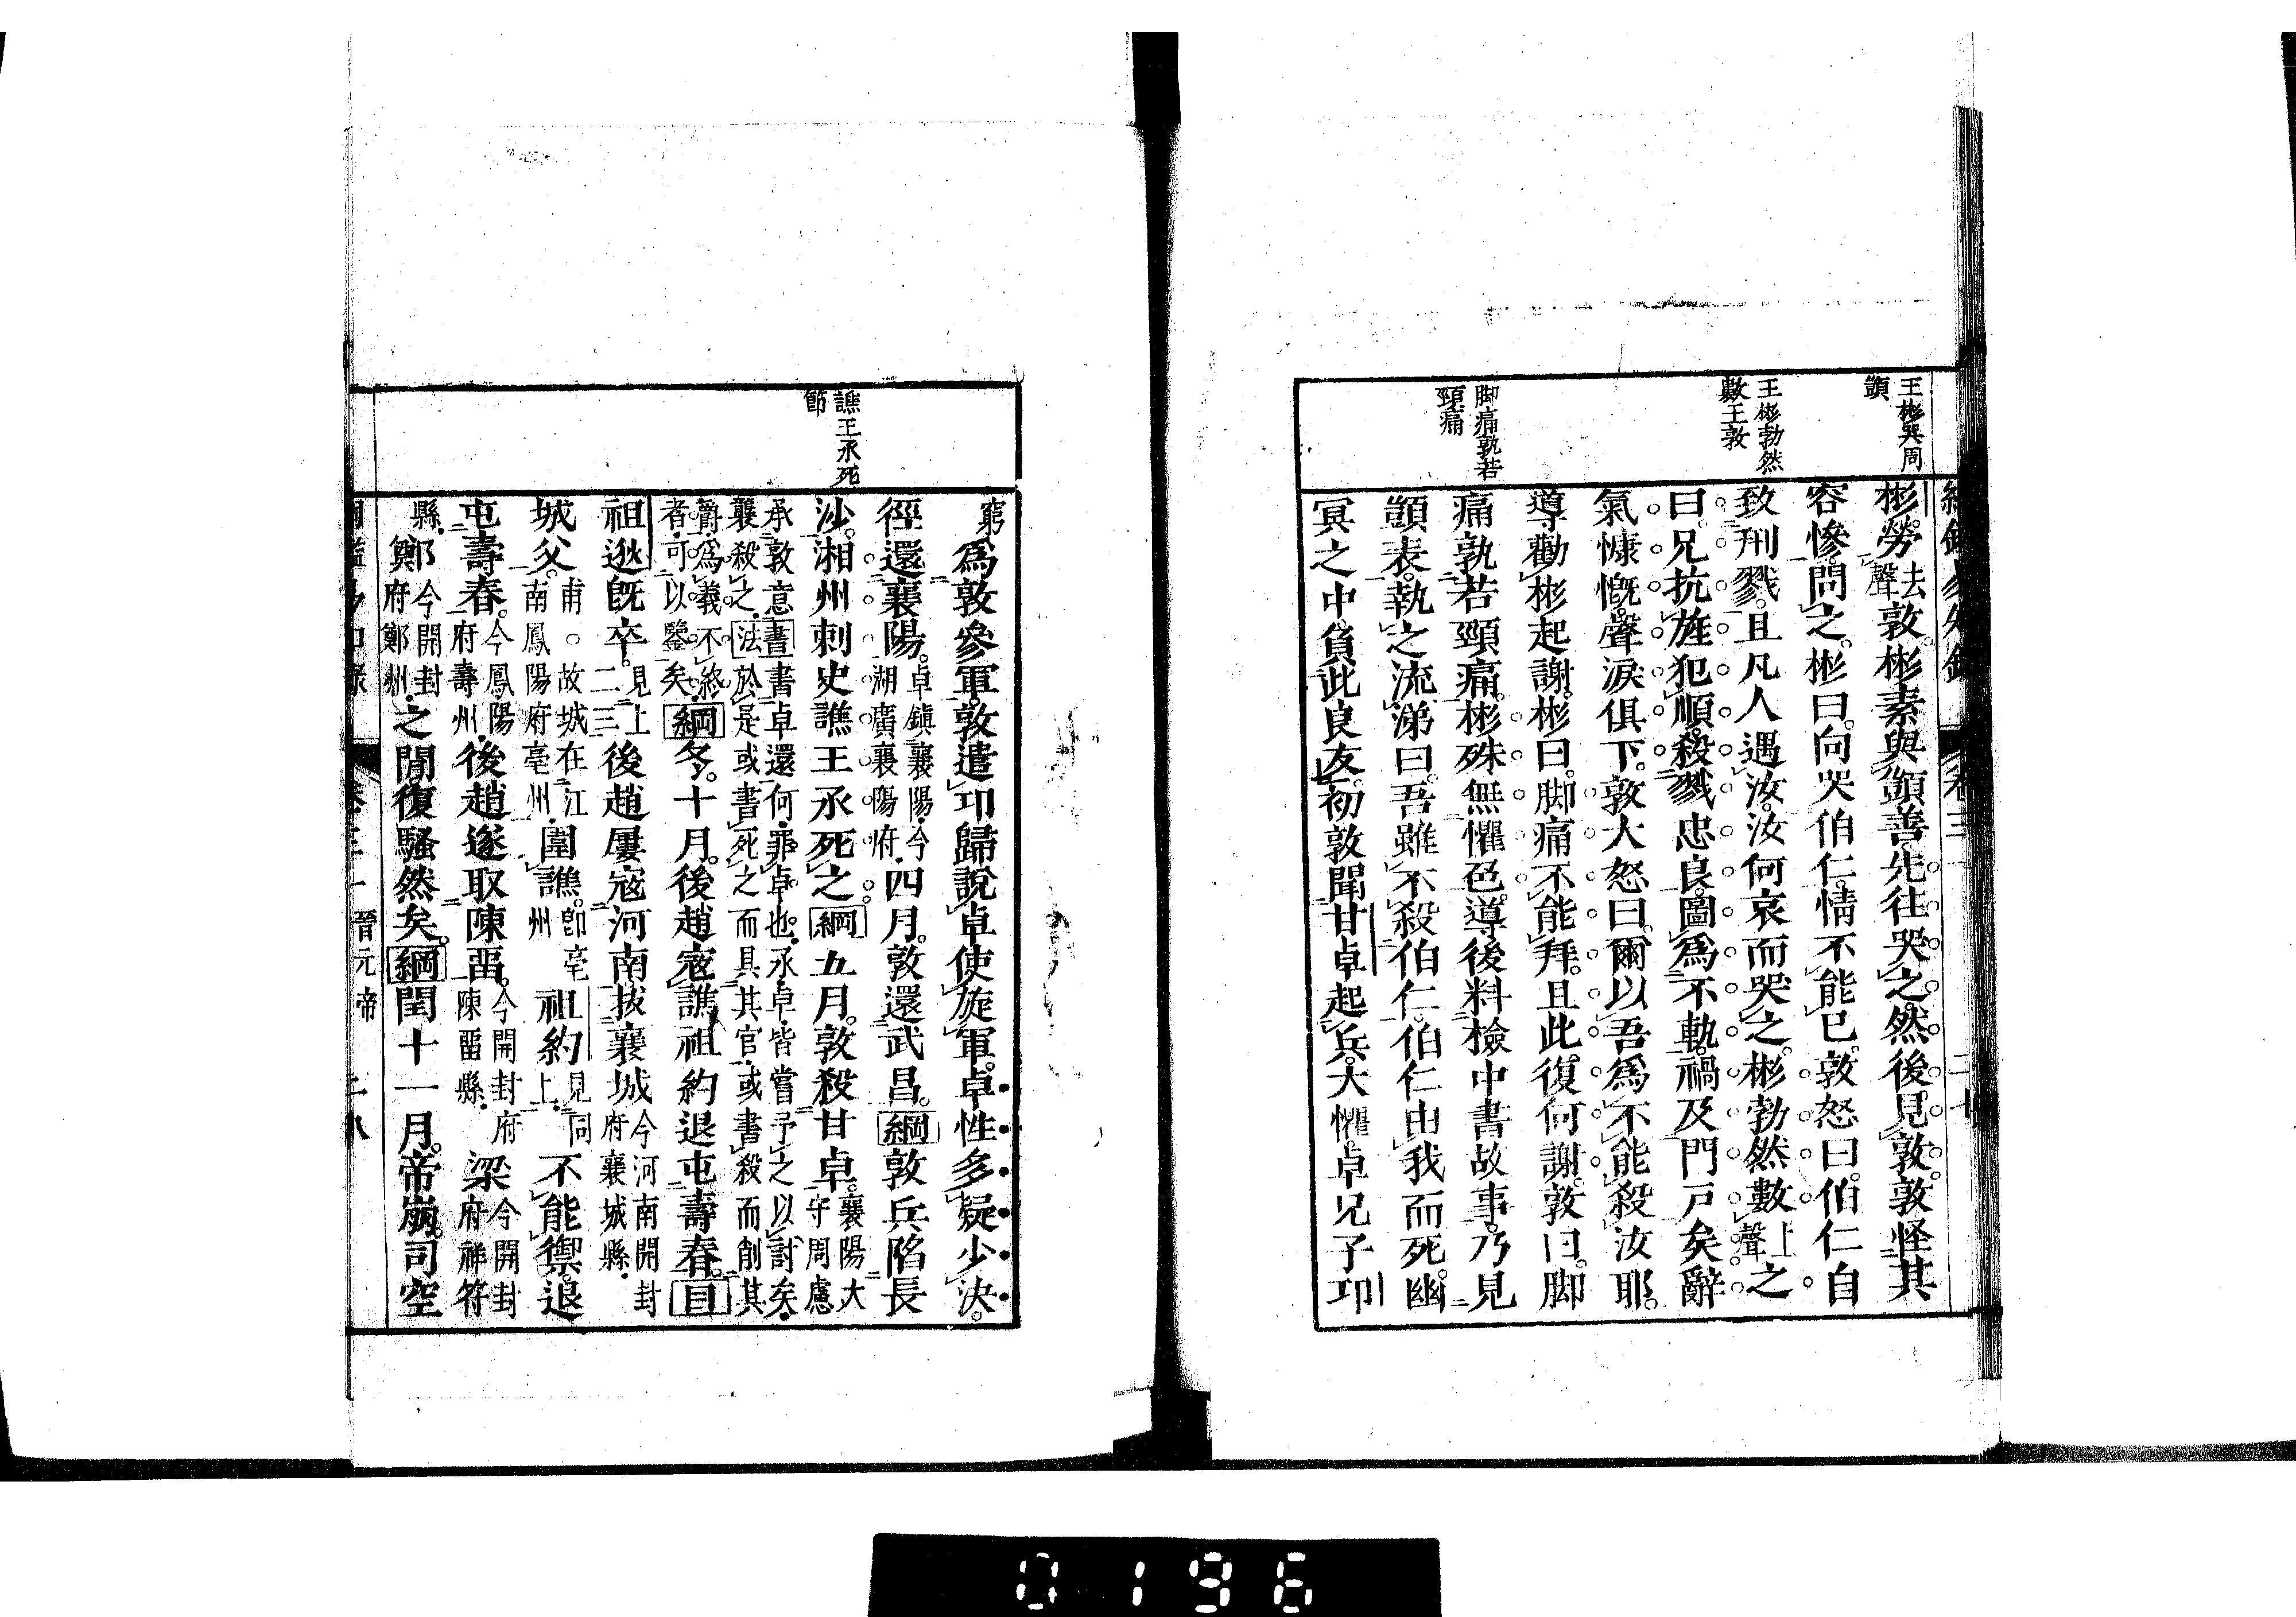 王彬哭周
顗
王彬勃然
數王敦
脚痛孰若
頸痛
彬勞去聲敦彬素與顗善先往哭之然後見敦敦怪其
容慘問之彬曰向哭伯仁情不能已敦怒曰伯仁自
致刑戮且凡人遇汝汝何哀而哭之彬勃然數上聲之
曰兄抗旌犯順殺戮忠良圖爲不軌禍及門戸矣辭
氣慷慨聲淚俱下敦大怒曰爾以吾爲不能殺汝耶
導勸彬起謝彬曰脚痛不能拜且此復何謝敦曰脚
痛孰若頸痛彬殊無懼色導後料檢中書故事乃見
顗表執之流涕曰吾雖不殺伯仁伯仁由我而死幽
冥之中負此良友初敦聞甘卓起兵大懼卓兄子卬
譙王承死
節
窮爲敦參軍敦遣卬歸說卓使旋軍卓性多疑少決
徑還襄陽卓鎭襄陽今湖廣襄陽府四月敦還武昌綱敦兵陷長
沙湘州刺史譙王承死之綱五月敦殺甘卓襄陽大守周慮
承敦意書書卓還何罪卓也承卓皆嘗予之以討矣
襲殺之法於是或書死之而具其官或書殺而削其
爵爲義不終者可以鑒矣綱冬十月後趙寇譙祖約退屯壽春目
祖逖旣卒見上二三後趙屢寇河南拔襄城今河南開封府襄城縣
城父甫故城在江南鳳陽府亳州圍譙卽亳州祖約見同上不能禦退
屯壽春今鳳陽府壽州後趙遂取陳畱今開封府陳畱縣梁今開封府祥符
縣鄭今開封府鄭州之閒復騷然矣綱閏十一月帝崩司空
晉元帝
0196